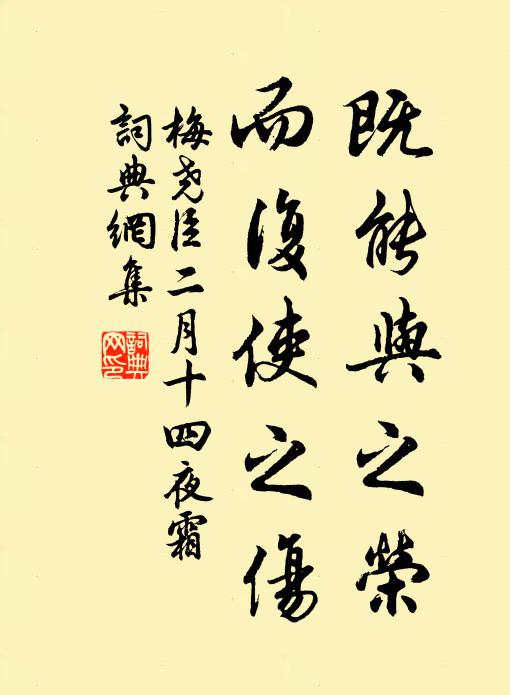 既能與之榮
而復使之傷
梅堯臣二月十四夜霜
詞典網集
詞典
网印